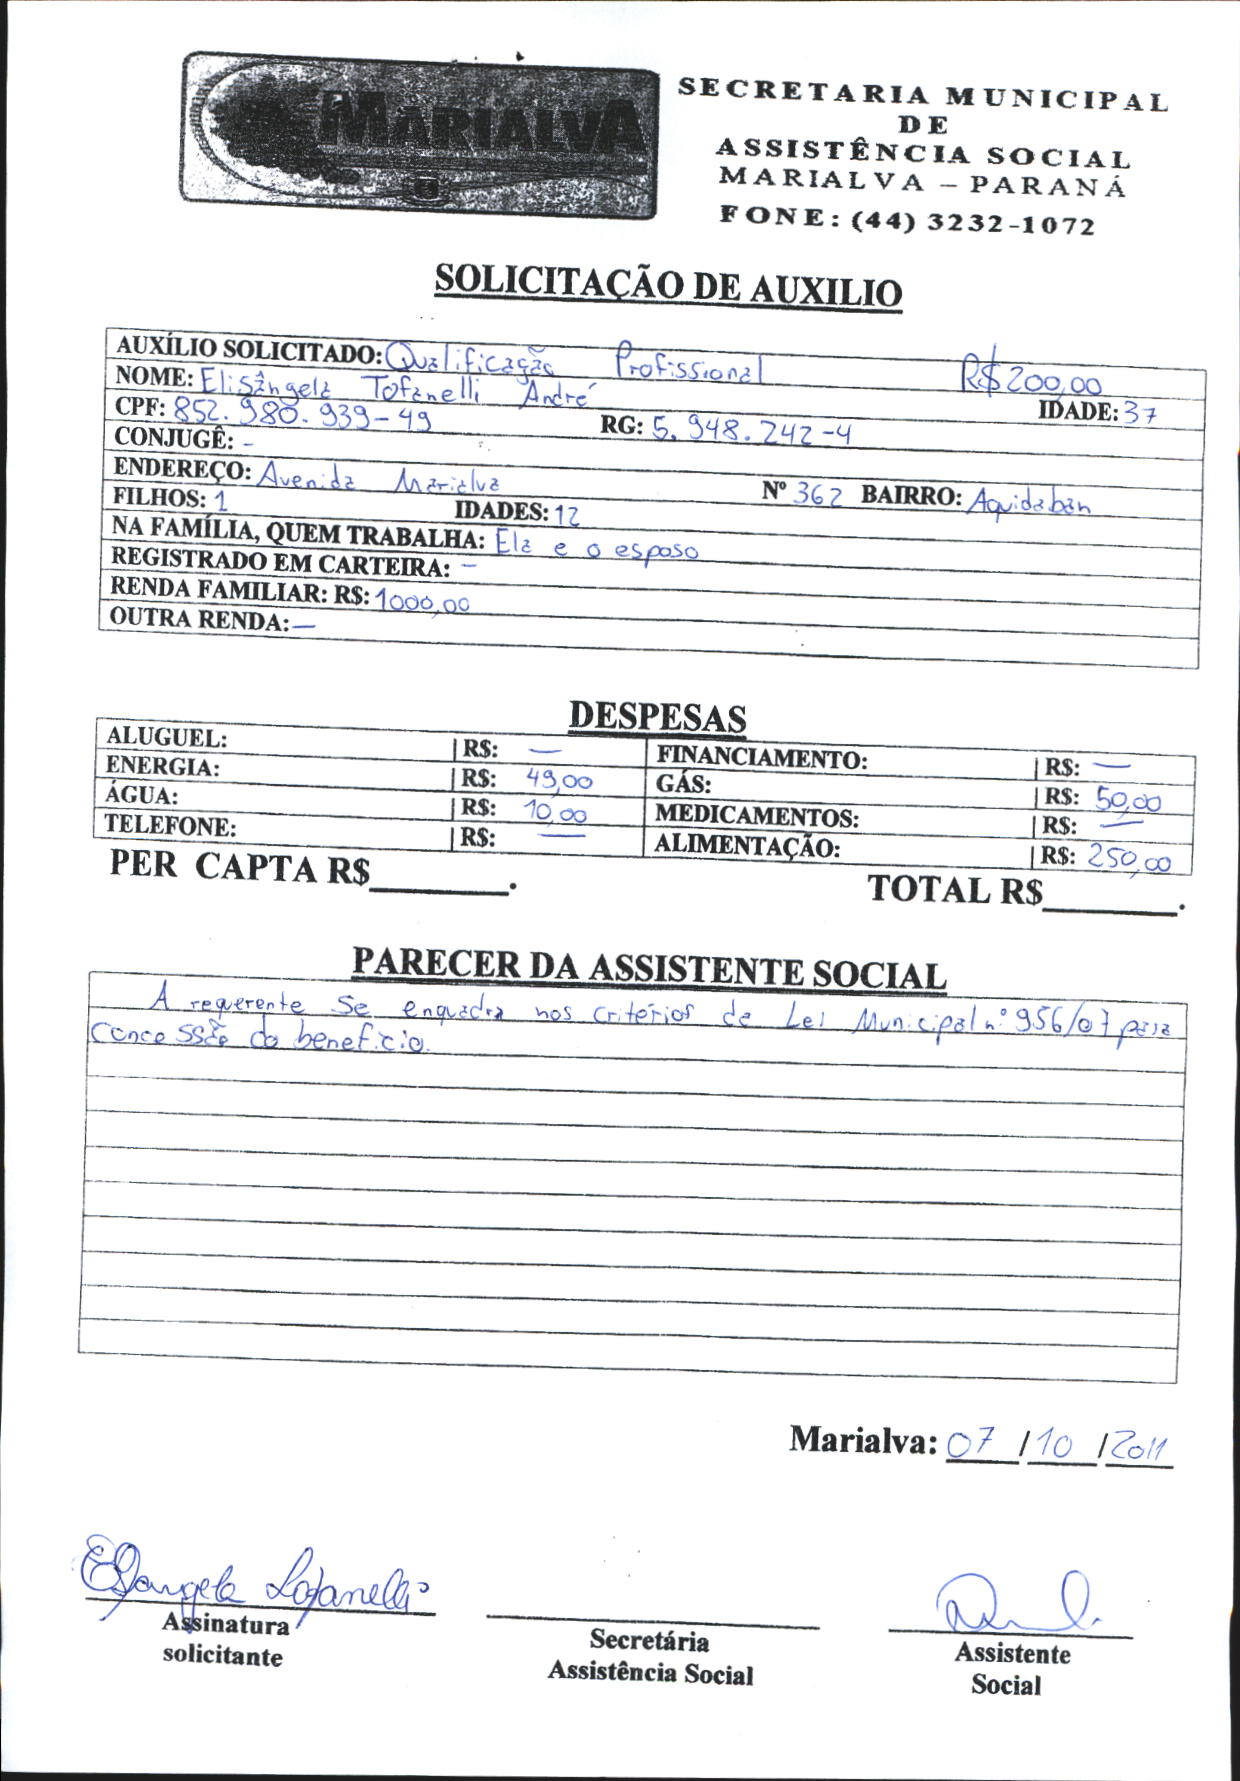 MARIALVA
SECRETARIA MUNICIPAL
DE
ASSISTÊNCIA SOCIAL
MARIALVA – PARANÁ
FONE: (44) 3232-1072
SOLICITAÇÃO DE AUXILIO
AUXÍLIO SOLICITADO: Qualificação Profissional R$ 200,00
NOME: Elisângela Tofanelli André IDADE: 37
CPF: 852.980.939-49 RG: 5.948.242-4
CONJUGÊ: -
ENDEREÇO: Avenida Marialva Nº 362 BAIRRO: Aquidaban
FILHOS: 1 IDADES: 12
NA FAMÍLIA, QUEM TRABALHA: Ela e o esposo
REGISTRADO EM CARTEIRA: -
RENDA FAMILIAR: R$: 1000,00
OUTRA RENDA: —
DESPESAS
ALUGUEL: R$: — FINANCIAMENTO: R$: —
ENERGIA: R$: 49,00 GÁS: R$: 50,00
ÁGUA: R$: 10,00 MEDICAMENTOS: R$: —
TELEFONE: R$: — ALIMENTAÇÃO: R$: 250,00
PER CAPTA R$_______. TOTAL R$_______.
PARECER DA ASSISTENTE SOCIAL
A requerente se enquadra nos critérios de Lei Municipal nº 956/07 para
concessão do benefício.
Marialva: 07 / 10 / 2011
Elisangela Tofanelli
Assinatura
solicitante
Secretária
Assistência Social
Assistente
Social